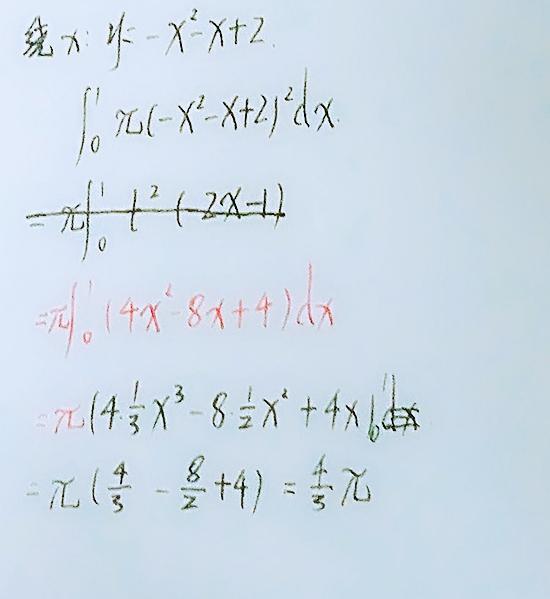 绕x: y=-x²-x+2.
∫₀¹ π(-x²-x+2)²dx.
=π∫₀¹ (² (-2x-1)
=π∫₀¹ (4x²-8x+4)dx
=π(4·⅓x³-8·½x²+4x|₀¹ dx
=π(4/3 - 8/2 +4) = 4/3 π